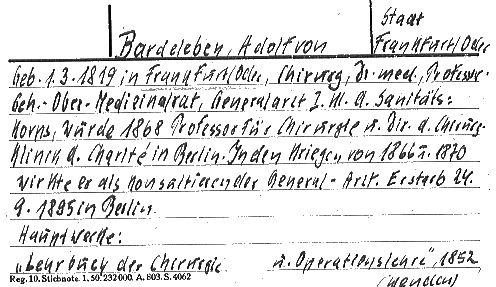 Bardeleben, Adolf von
Staat
Frankfurt/Oder
Geb. 1.3.1819 in Frankfurt/Oder, Chirurg, Dr. med., Professor
Geh. Ober-Medizinalrat, Generalarzt I. Kl. d. Sanitäts-
Korps, wurde 1868 Professor für Chirurgie u. Dir. d. Chirurg.
Klinik d. Charité in Berlin. In den Kriegen von 1866 u. 1870
wirkte er als konsultierender General-Arzt. Er starb 24.
9. 1895 in Berlin.
Hauptwerke:
„Lehrbuch der Chirurgie u. Operationslehre", 1852
Reg. 10. Stichnote. 1. 50. 232000. A. 803. S. 4062
(wenden)